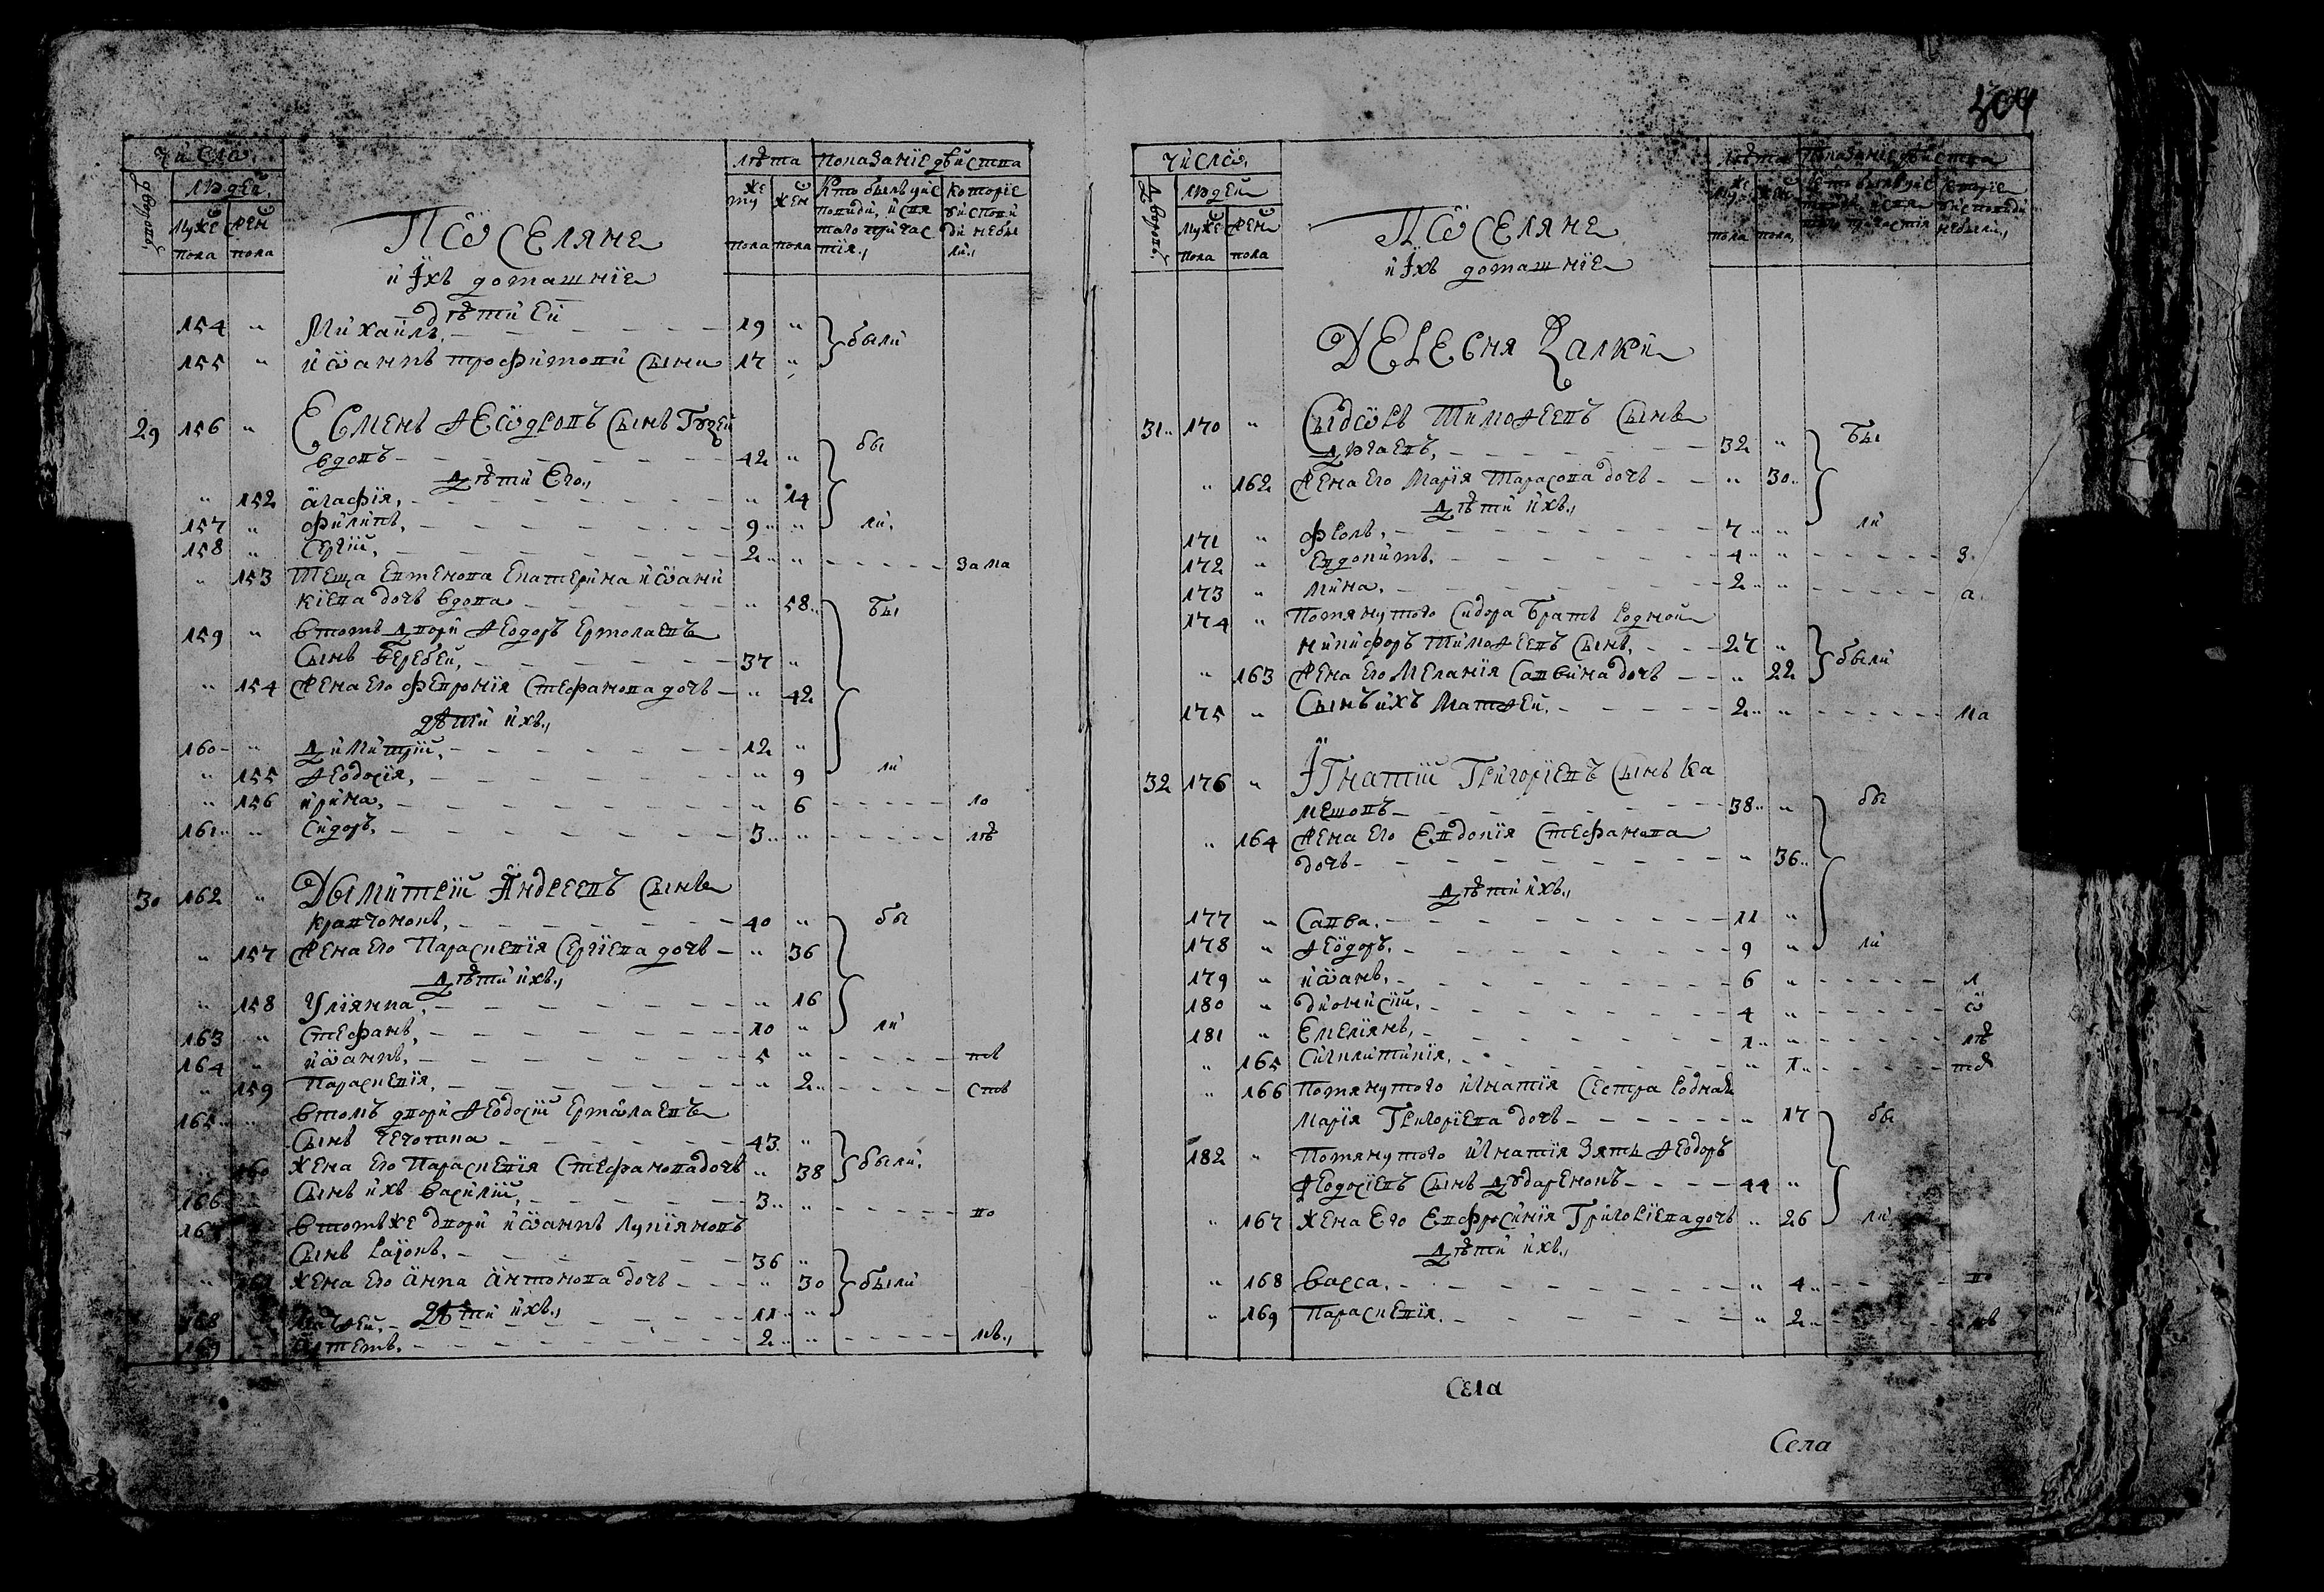 Числа.
Дворовъ
людей.
муже
пола
жен
пола
Посѣляне
и Ихъ домашніе
лѣта
муже
пола
жен
пола
Показаніе дѣйства
Кто былъ у испо
вѣди, и свя
таго причас
тія.,
которіе
у исповѣ
ди небы
ли.,
дѣти Еи
154 " Михаилъ. 19 "
были
155 " иѡаннъ трофимови сыни 17 "
29 156 " Есменъ Ѳеѡдоровъ сынъ Гудей
вдовъ 42 " бы
Дѣти Его.,
" 152 агафія, " 14
157 " филипъ, 9 " ли.
158 " Сергій, 2 " за ма
" 153 Теща Евменова Екатерина иѡани
кіева дочъ вдова " 58 бы
159 " втомъ Дворѣ Ѳеодоръ Ермолаевъ
сынъ Беребей, 37 "
" 154 жена Его февронія Стефанова дочъ " 42
дѣти ихъ.,
160 " Димитрій, 12 "
" 155 Ѳеодосія, " 9 ли
" 156 ирина, " 6 ло
161 " Сидоръ, 3 " лѣ
30 162 " Дымитрій Андреевъ сынъ
кравчонокъ, 40 " бы
" 157 жена Его Параскевія Сергіева дочъ " 36
Дѣти ихъ.,
" 158 Уліянна, " 16
163 " Стефанъ, 10 " ли
164 " иѡаннъ, 5 " тъ
" 159 Параскевія, " 2 ств
165 " втомъ дворѣ Ѳеодосій Ермѡлаевъ
сынъ Чечотка 43 "
" 160 жена Его Параскевія Стефанова дочъ " 38 были.
166 сынъ ихъ Василій, 3 " по
167 втомъ же дворѣ иѡаннъ Лукіяновъ
сынъ 36 "
" 161 жена Его Анна Антонова дочъ " 30 были
дѣти ихъ.,
168 11 "
169 2 " лѣ.,
304
Числѡ.
Дворовъ
людей
муже
пола
жен
пола
Посѣляне
и Ихъ домашніе
лѣта
муже
пола
жен
пола
Показаніе дѣйства
Деревня Залки
31 170 " Сидоръ Тимоѳеевъ сынъ
32 " Бы
" 162 жена Его Марія Тарасова дочъ " 30
Дѣти ихъ.,
171 " фролъ, 7 " ли
172 " Евдокимъ, 4 " з.
173 " Мина, 2 " а.
174 " Помянутого Сидора братъ родной
никифоръ Тимоѳеевъ сынъ, 27 "
были
" 163 жена Его Меланія Саввина дочъ " 22
175 " Сынъ ихъ Матѳей, 2 " ма
32 176 " Ігнатій Григоріевъ сынъ Ка
мешовъ 38 " бы
" 164 жена Его Евдокія Стефанова
дочъ " 36
Дѣти ихъ.,
177 " Савва. 11 "
178 " Ѳеѡдоръ. 9 " ли
179 " иѡанъ, 6 " л
180 " дионисій, 4 " ѡ
181 " Емеліянъ, 1 " лѣ
" 165 " 1 тс
" 166 Помянутого игнатія Сестра родная
Марія Григоріева дочъ " 17 бы
182 " Помянутого игнатія Зять Ѳеодоръ
Ѳеодосіевъ сынъ Дударенокъ 44 "
" 167 жена Его Евфросинія Григоріева дочъ " 26 ли.
Дѣти ихъ.,
" 168 Васса, " 4 по
" 169 Параскевія. " 2 лѣ
Села
Села